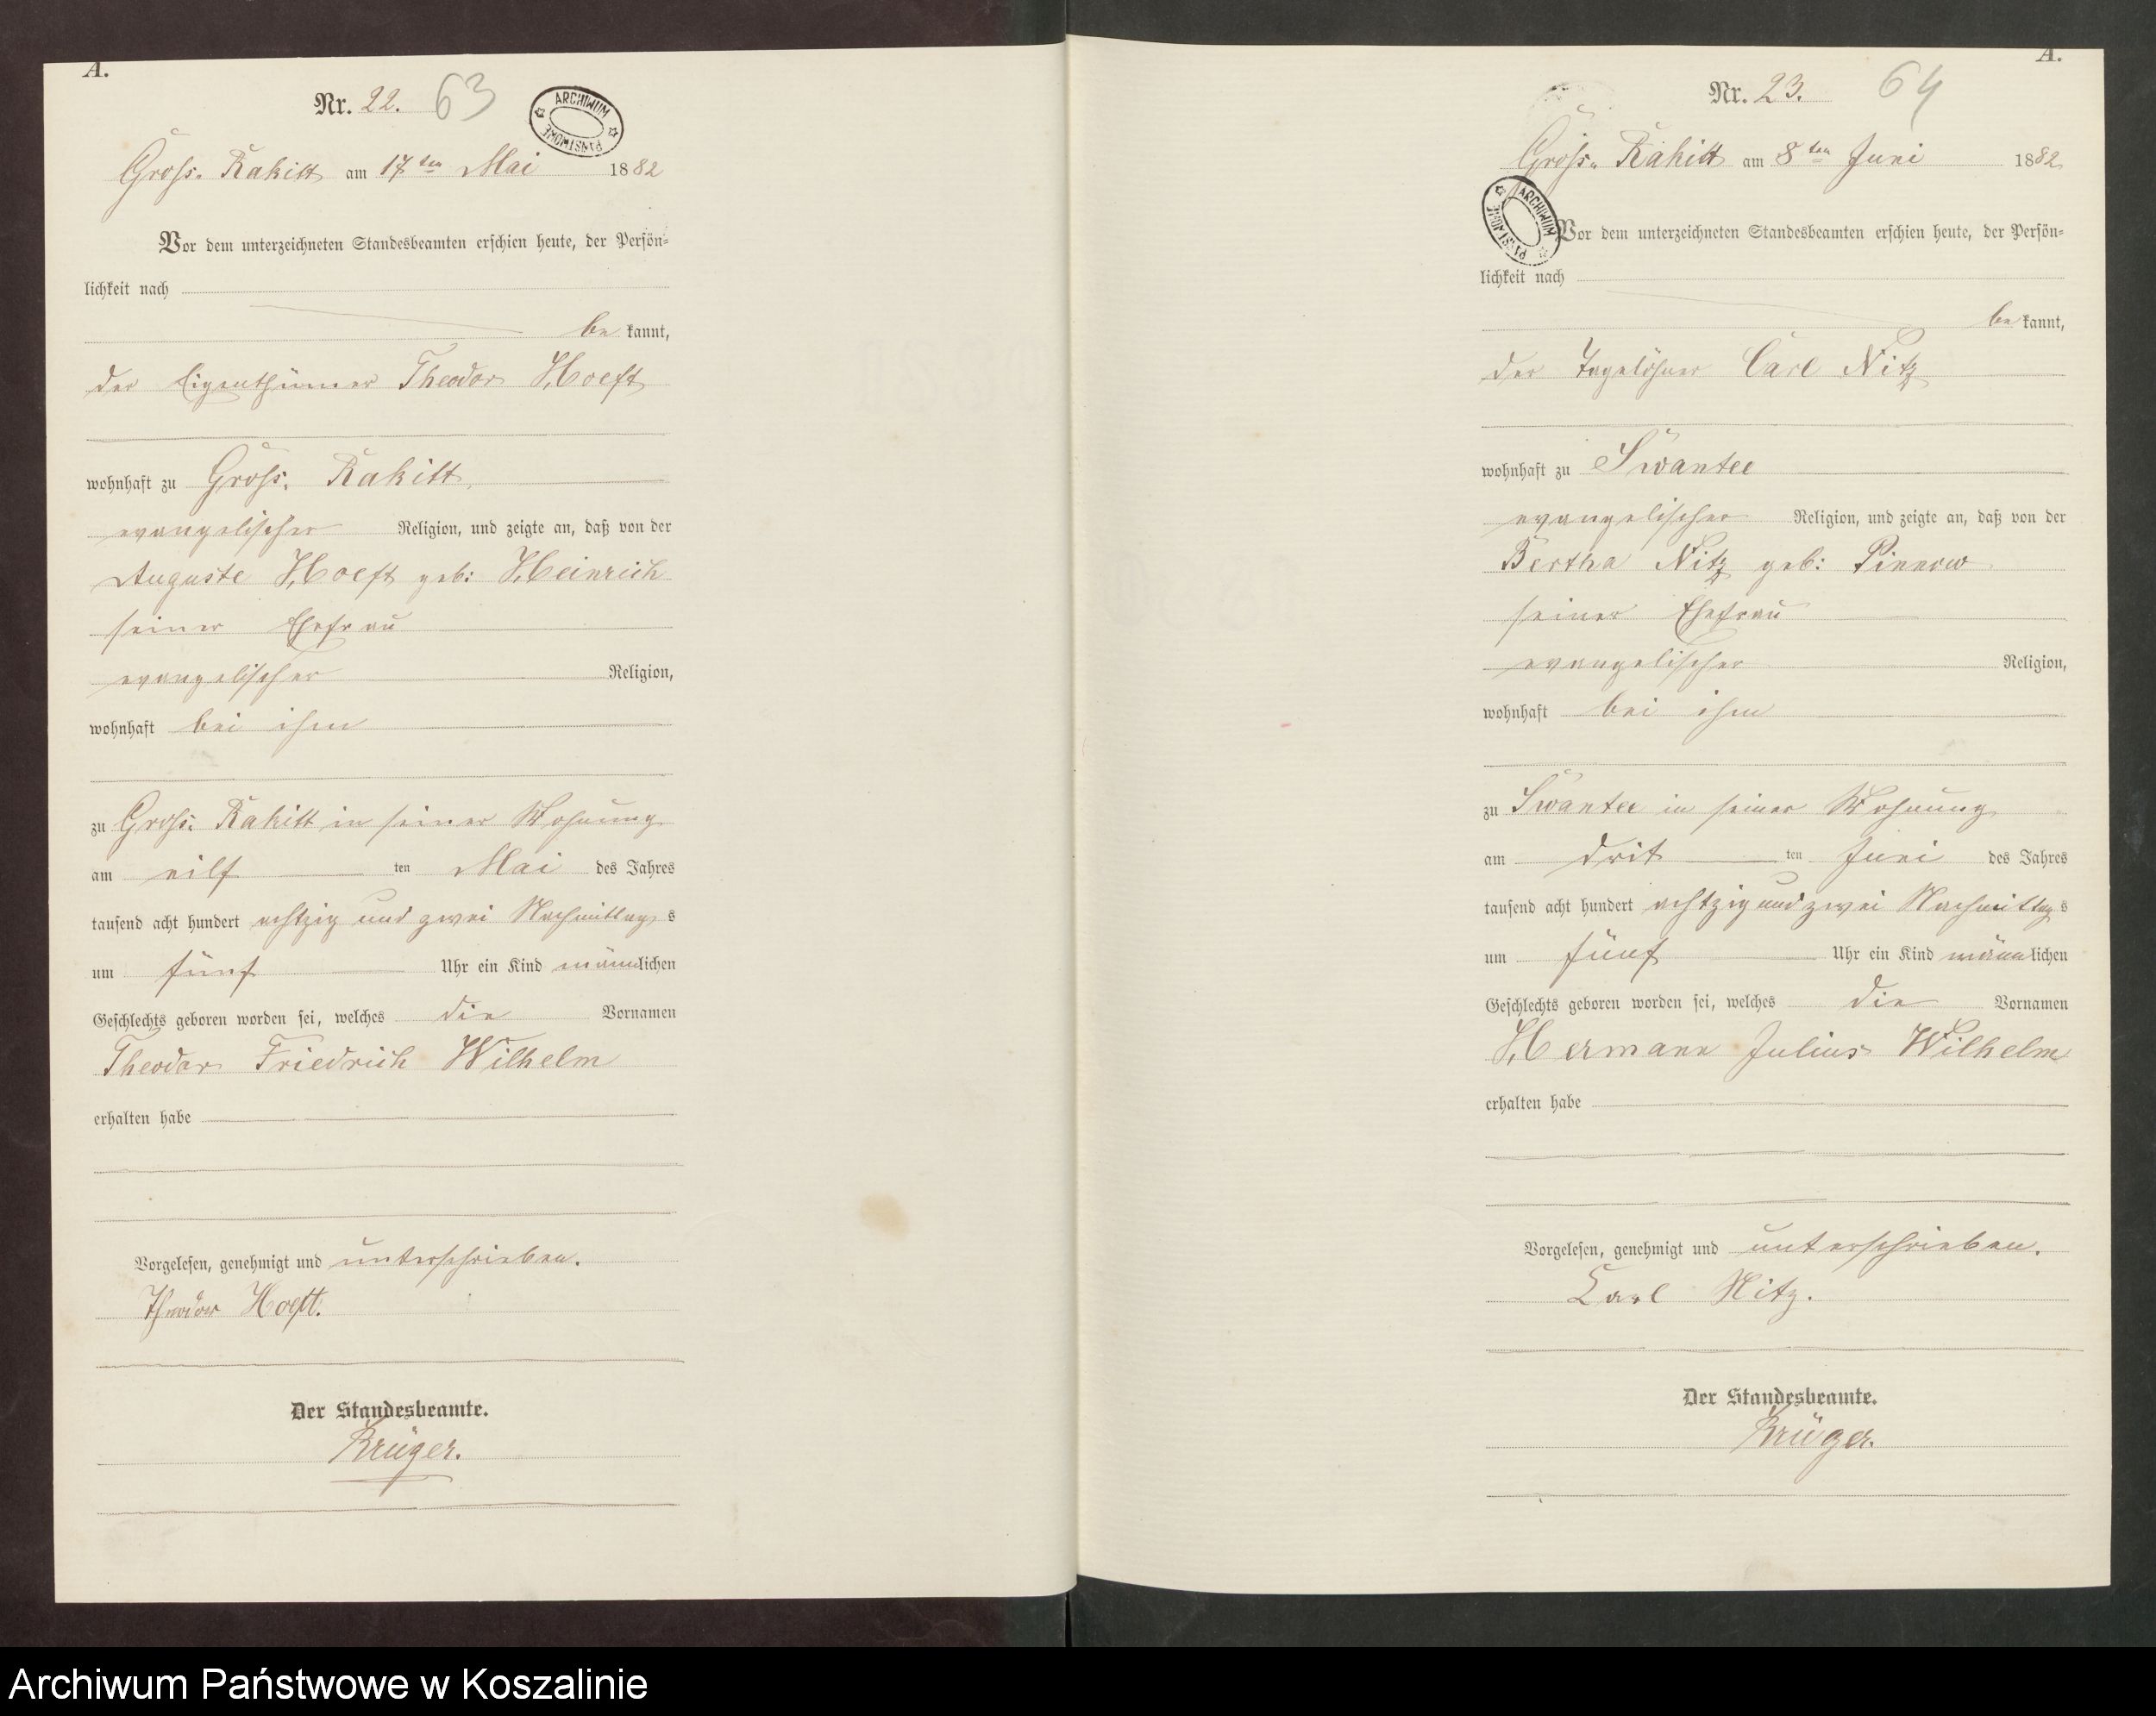 A.
Nr. 22. 63
ARCHIWUM PAŃSTWOWE
Gross. Rakitt am 17ten Mai 1882
Vor dem unterzeichneten Standesbeamten erschien heute, der Persön-
lichkeit nach
be kannt,
der Eigenthümer Theodor Hoeft
wohnhaft zu Gross. Rakitt,
evangelischer Religion, und zeigte an, daß von der
Auguste Hoeft geb: Heinrich
seiner Ehefrau
evangelischer Religion,
wohnhaft bei ihm
zu Gross: Rakitt in seiner Wohnung
am eilf ten Mai des Jahres
tausend acht hundert achtzig und zwei Nachmittag s
um fünf Uhr ein Kind männlichen
Geschlechts geboren worden sei, welches die Vornamen
Theodor Friedrich Wilhelm
erhalten habe
Vorgelesen, genehmigt und unterschrieben.
Theodor Hoeft.
Der Standesbeamte.
Krüger.
A.
Nr. 23. 64
Gross. Rakitt am 8ten Juni 1882
ARCHIWUM PAŃSTWOWE
Vor dem unterzeichneten Standesbeamten erschien heute, der Persön-
lichkeit nach
be kannt,
der Tagelöhner Carl Nitz
wohnhaft zu Swantee
evangelischer Religion, und zeigte an, daß von der
Bertha Nitz geb: Pinnow
seiner Ehefrau
evangelischer Religion,
wohnhaft bei ihm
zu Swantee in seiner Wohnung
am drit ten Juni des Jahres
tausend acht hundert achtzig und zwei Nachmittag s
um fünf Uhr ein Kind männlichen
Geschlechts geboren worden sei, welches die Vornamen
Hermann Julius Wilhelm
erhalten habe
Vorgelesen, genehmigt und unterschrieben.
Carl Nitz.
Der Standesbeamte.
Krüger.
Archiwum Państwowe w Koszalinie